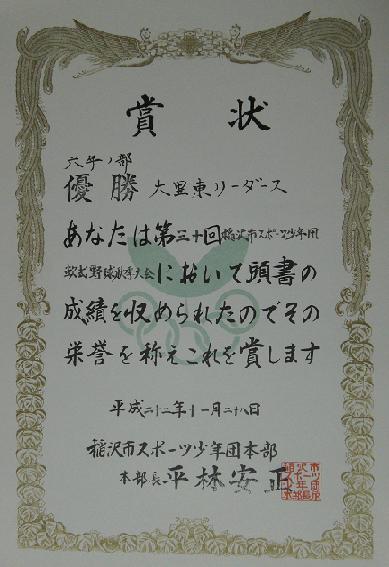 賞状
六年ノ部
優勝 大里東リーダース
あなたは第三十回稲沢市スポーツ少年団
軟式野球秋季大会において頭書の
成績を収められたのでその
栄誉を称えこれを賞します
平成二十二年十一月二十八日
稲沢市スポーツ少年団本部
本部長 平林安正